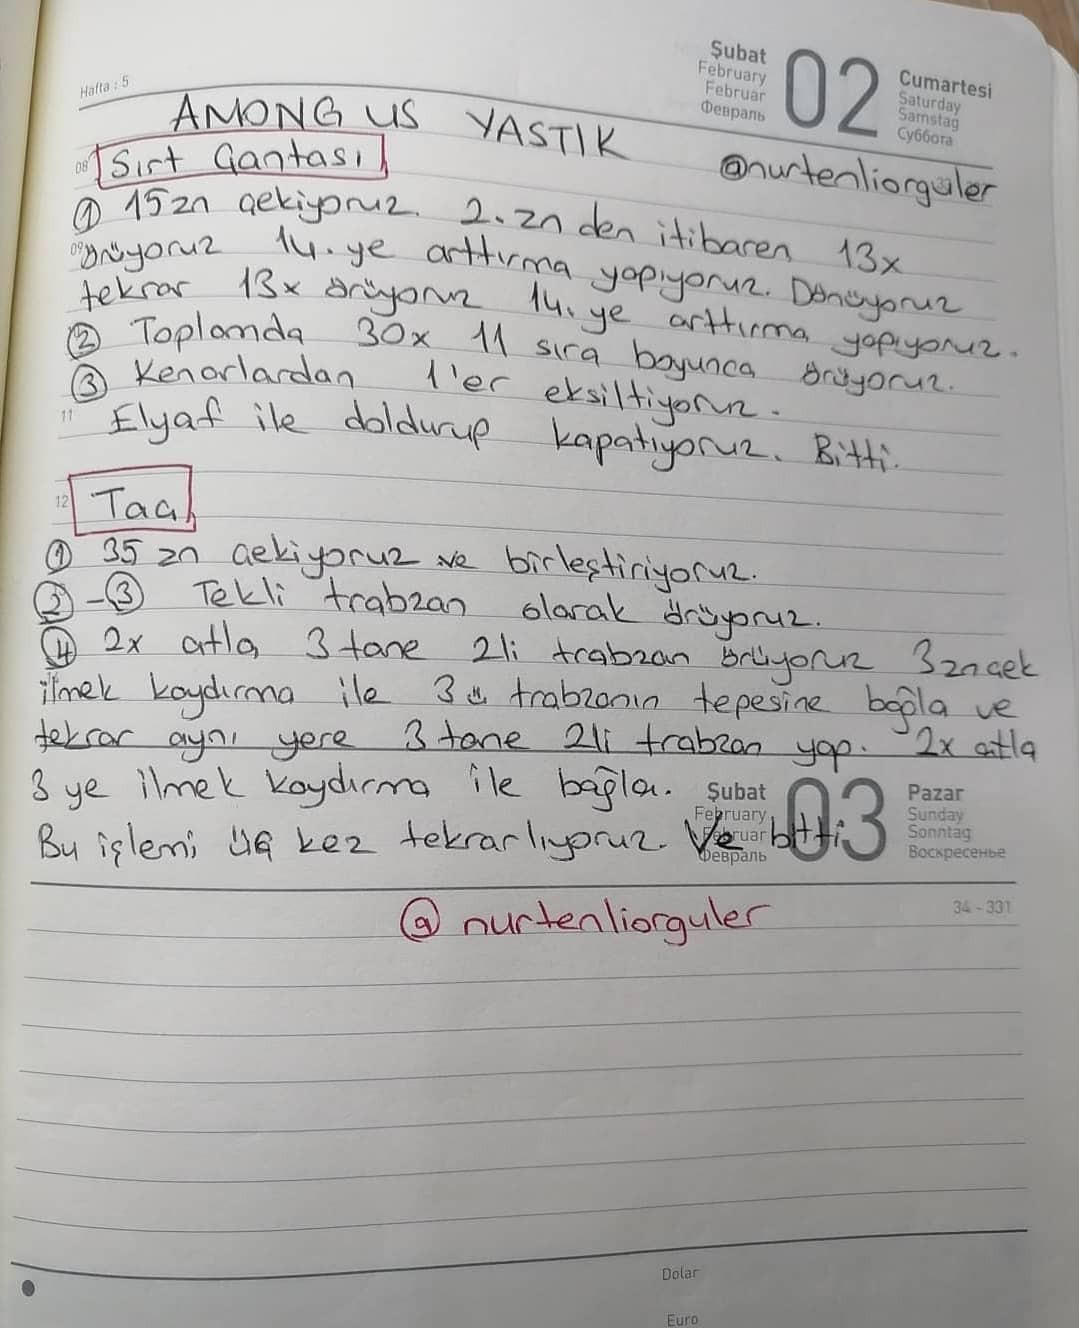 Hafta : 5
Şubat
February
Februar
Февраль
02
Cumartesi
Saturday
Samstag
Суббота
AMONG US YASTIK
@nurtenliorguler
08 Sırt Çantası
① 15 zn çekiyoruz. 2. zn den itibaren 13x
09 örüyoruz 14. ye arttırma yapıyoruz. Dönüyoruz
tekrar 13x örüyoruz 14. ye arttırma yapıyoruz.
② Toplamda 30x 11 sıra boyunca örüyoruz.
③ Kenarlardan 1'er eksiltiyoruz.
11 Elyaf ile doldurup kapatıyoruz. Bitti.
12 Taç
① 35 zn çekiyoruz ve birleştiriyoruz.
② - ③ Tekli trabzan olarak örüyoruz.
④ 2x atla 3 tane 2li trabzan örüyoruz 3 zn çek
ilmek kaydırma ile 3ü trabzanın tepesine bağla ve
tekrar aynı yere 3 tane 2li trabzan yap. 2x atla
3 ye ilmek kaydırma ile bağla.
Bu işlemi üç kez tekrarlıyoruz. Ve bitti
Şubat
February
Februar
Февраль
03
Pazar
Sunday
Sonntag
Воскресенье
34 - 331
@nurtenliorguler
Dolar
Euro